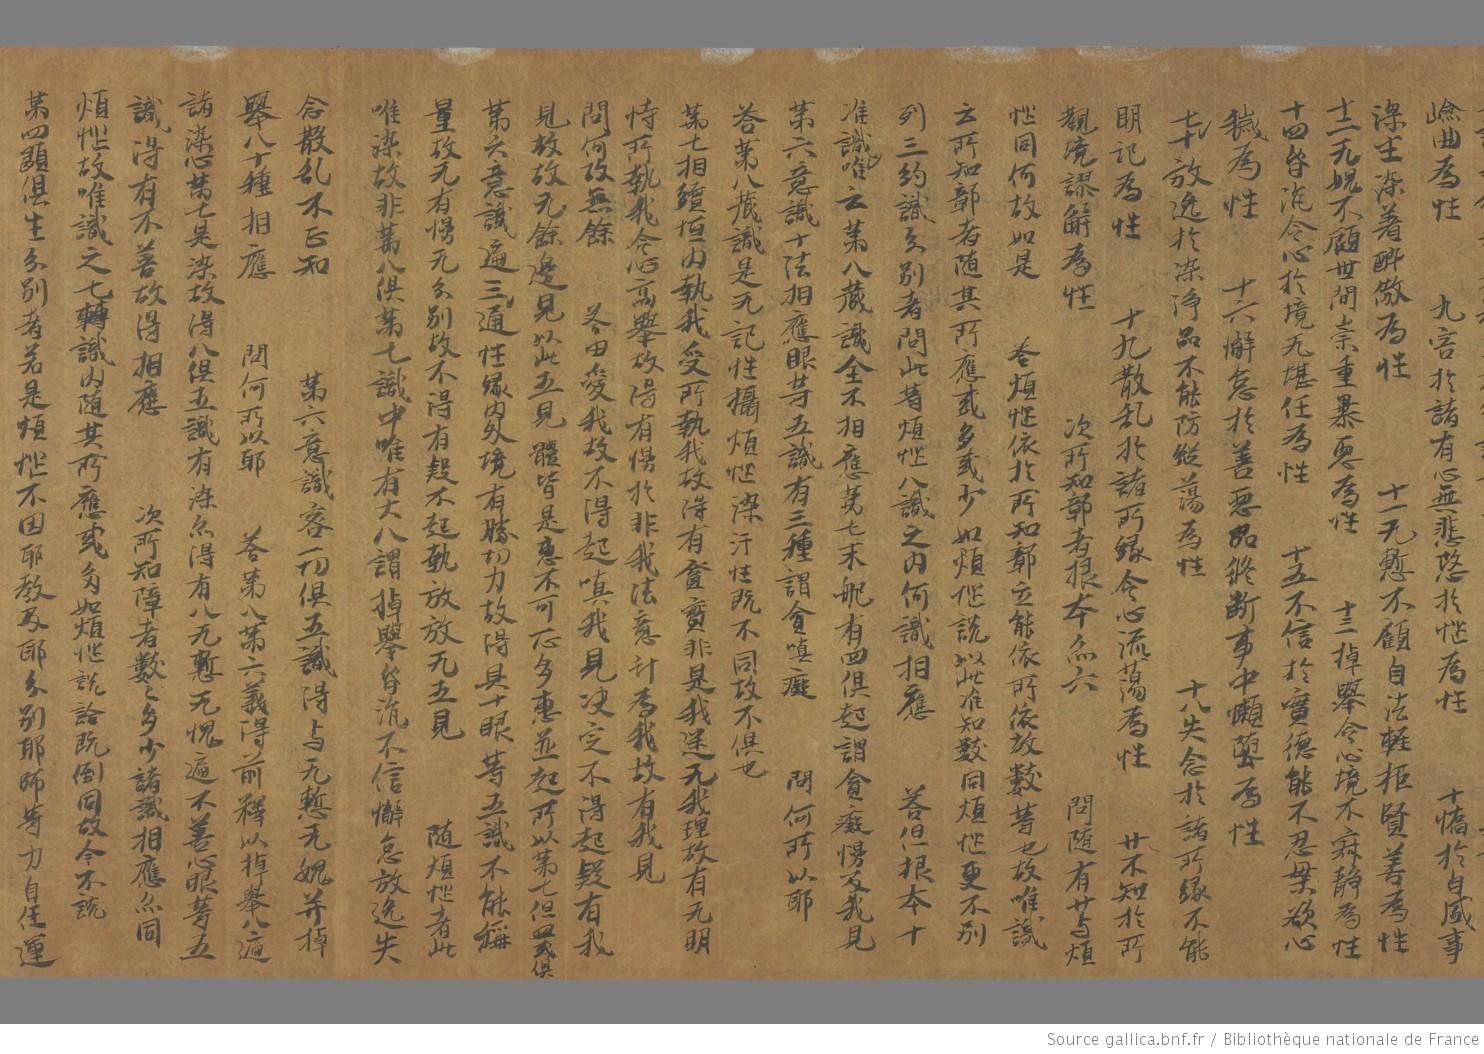 嶮曲為性　九害於諸有心無悲愍於惱為性　十憍於自盛事
深生染著醉傲為性　十一无慙不顧自法軽拒賢善為性
十二无愧不顧世間崇重暴惡為性　十三掉舉令心境不寂静為性
十四昏沉令心於境无堪任為性　十五不信於實德能不忍樂欲心
穢為性　十六懈怠於善惡品修断事中懶墮為性
十七放逸於染淨品不能防縱蕩為性　十八失念於諸所緣不能
明記為性　十九散乱於諸所緣令心流蕩為性　廿不知於所
觀境謬解為性　次所知鄣者根本亦六　問随有廿与煩
惱同何故如是　答煩惱依於所知鄣立能依所依故數等也故唯識
云所知鄣者随其所應或多或少如煩惱說以此准知數同煩惱更不別
列三約識分別者問此等煩惱八識之内何識相應　答但根本十
准識唯云苐八蔵識全不相應苐七末那有四俱起謂貪癡慢及我見
苐六意識十法相應眼等五識有三種謂貪嗔癡　問何所以耶
答苐八蔵識是无記性攝煩惱染汙性既不同故不俱也
苐七相續恒内執我受所執我故得有貪實非是我迷无我理故有无明
恃所執我令心高舉故得有慢於非我法意計為我故有我見
問何故無餘　答由愛我故不得起嗔我見决定不得起疑有我
見故故无餘邊見以此五見體皆是惠不可一心多惠並起所以苐七但四或俱
苐六意識遍三通性緣内外境有勝切力故得具十眼等五識不能稱
量故无有慢无分別故不得有疑不起執故故无五見　随煩惱者此
唯染故非苐八俱苐七識中唯有大八謂掉舉昏沉不信懈怠放逸失
念散乱不正知　苐六意識容一切俱五識得与无慙无愧并掉
舉八十種相應　問何所以耶　答苐八苐六義得前釋以掉舉八遍
諸染心苐七是染故得八俱五識有染亦得有八无慙无愧遍不善心眼等五
識得有不善故得相應　次所知障者數之多少諸識相應亦同
煩惱故唯識之七轉識内随其所應或多如煩惱說詮既倒同故今不說
苐四顯俱生分別者若是煩惱不因耶教及耶分別耶師等力自任運